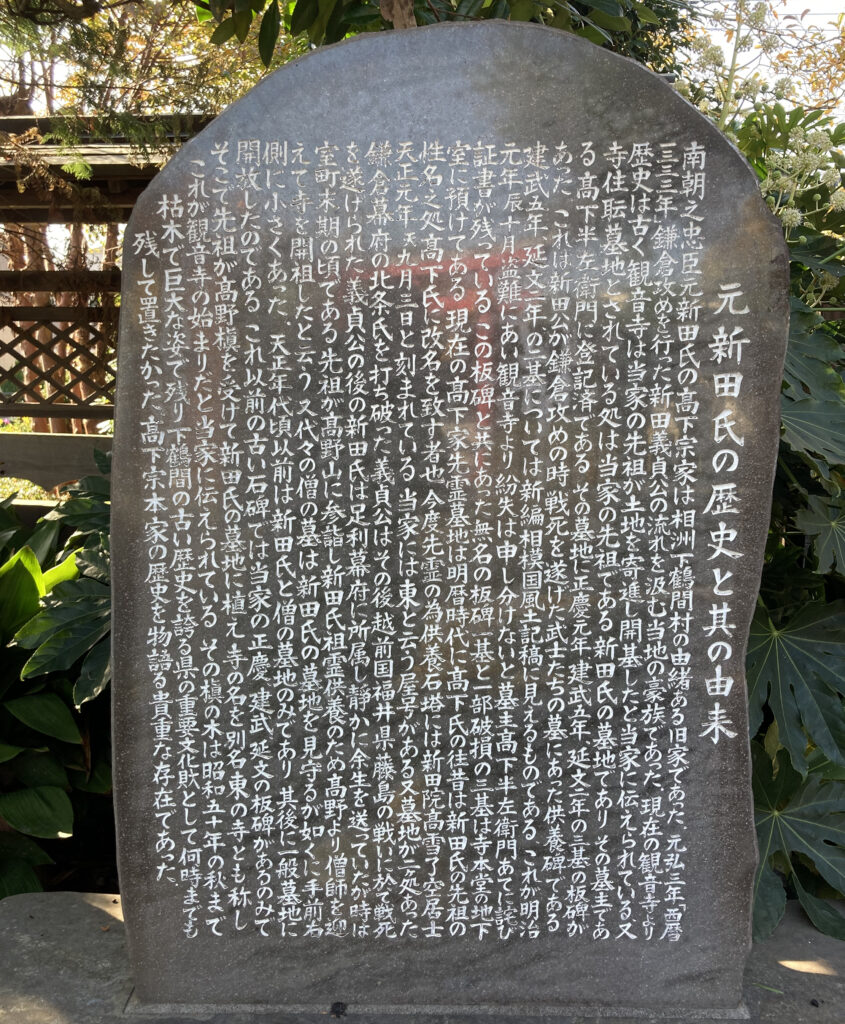 元新田氏の歴史と其の由来
南朝之忠臣元新田氏の高下宗家は相洲下鶴間村の由緒ある旧家であった。元弘三年「西暦
一三三三年」鎌倉攻めを行った新田義貞公の流れを汲む当地の豪族であった。現在の観音寺より
歴史は古く観音寺は当家の先祖が土地を寄進し開基したと当家に伝えられている又
寺住転墓地とされている処は当家の先祖である新田氏の墓地でありその墓主であ
る高下半左衛門に登記済である。その墓地に正慶元年建武五年延文二年の三基の板碑が
あった。これは新田公が鎌倉攻めの時戦死を遂げた武士たちの墓にあった供養碑である
建武五年延文二年の二基については新編相模国風土記稿に見えるものである。これが明治
元年辰十月盗難にあい観音寺より紛失は申し分けないと墓主高下半左衛門あてに詫び
証書が残っている。この板碑と共にあった無名の板碑一基と一部破損の三基は寺本堂の地下
室に預けてある。現在の高下家先霊墓地は明暦時代に高下氏の往昔は新田氏の先祖の
性名之処高下氏に改名を致す者也。今度先霊の為供養石塔には新田院高雪了空居士
天正元年天九月三日と刻まれている。当家には東と云う屋号がある又墓地が二処あった
鎌倉幕府の北条氏を打ち破った義貞公はその後越前国福井県藤島の戦いに於て戦死
を遂げられた義貞公の後の新田氏は足利幕府に所属し静かに余生を送っていたが時は
室町末期の頃である先祖が高野山に参詣し新田氏祖霊供養のため高野より僧師を迎
えて寺を開祖したと云う又代々の僧の墓は新田氏の墓地を見守るが如くに手前右
側に小さくあった。天正年代頃以前は新田氏と僧の墓地のみであり其後に一般墓地に
開放したのである。これ以前の古い石碑では当家の正慶、建武、延文の板碑があるのみて
そこで先祖が高野槇を受けて新田氏の墓地に植え寺の名を別名東の寺とも称し
これが観音寺の始まりだと当家に伝えられている。その槇の木は昭和五十年の秋まで
枯木で巨大な姿で残り下鶴間の古い歴史を誇る県の重要文化財として何時までも
残して置きたかった。高下宗本家の歴史を物語る貴重な存在であった。